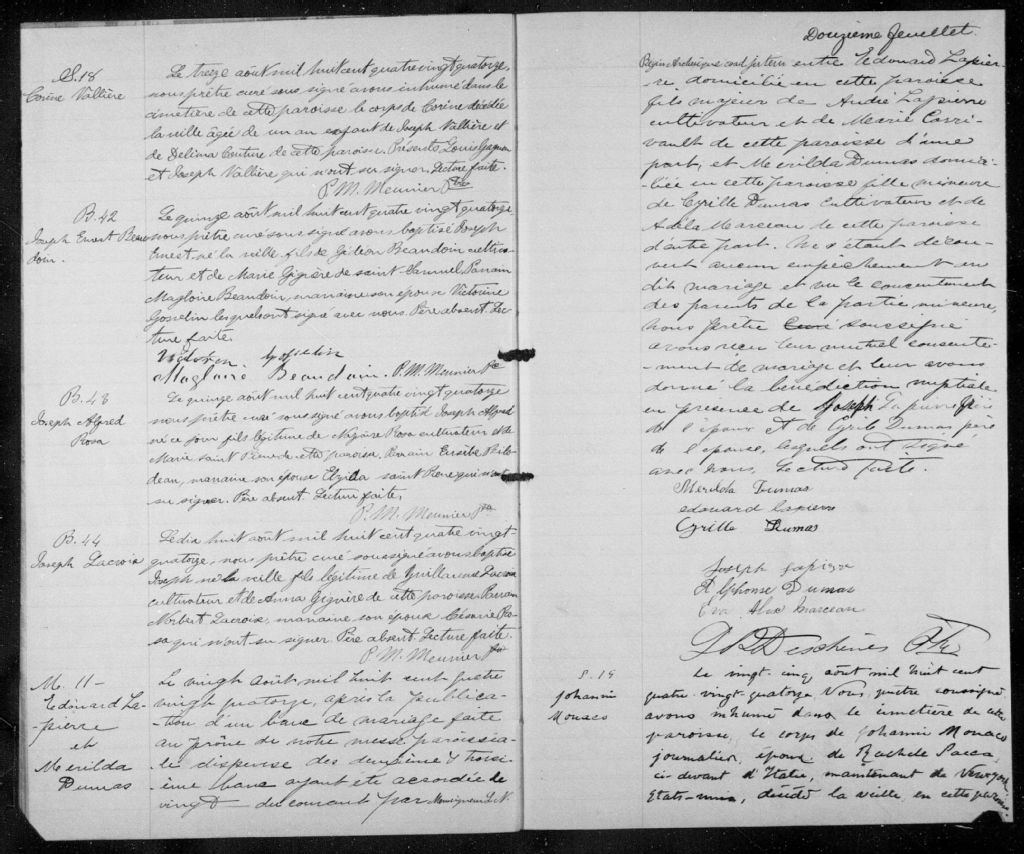 S.18
Corine Vallière
Le treize août mil huit cent quatre vingt quatorze,
nous prêtre curé sous signé avons inhumé dans le
cimetière de cette paroisse le corps de Corine décédée
la veille âgée de un an enfant de Joseph Vallière et
de Delima Couture de cette paroisse. Présents Louis Gagnon
et Joseph Vallière qui n'ont su signer. Lecture faite.
P. M. Meunier Ptre
B.42
Joseph Ernest Beau
doin.
Le quinze août mil huit cent quatre vingt quatorze
nous prêtre curé sous signé avons baptisé Joseph
Ernest né la veille, fils de Gédéon Beaudoin cultiva-
teur et de Marie Giguère de saint-Samuel, Parrain
Magloire Beaudoin, marraine son épouse Victorine
Gosselin lesquels ont signé avec nous. Père absent. Lec-
ture faite.
Gosselin
Magloire Beaudoin. P. M. Meunier Ptre
B.43
Joseph Alfred
Rosa
Le quinze août mil huit cent quatre vingt quatorze
nous prêtre curé sous signé avons baptisé Joseph Alfred
né ce jour fils légitime de Rosa cultivateur et de
Marie saint Pierre de cette paroisse, Parrain
marraine son épouse saint Pierre qui n'ont
su signer. Père absent. Lecture faite.
P. M. Meunier Ptre
B.44
Joseph Lacroix
Le dix huit août mil huit cent quatre vingt-
quatorze, nous prêtre curé soussigné avons baptisé
Joseph né la veille fils légitime de Guillaume Lacroix
cultivateur et de Anna Giguère de cette paroisse Parrain
Norbert Lacroix, marraine son épouse Césarie Ro-
sa qui n'ont su signer. Père absent. Lecture faite.
P. M. Meunier Ptre
M. 11 -
Edouard La-
pierre
et
Merilda
Dumas
Le vingt août mil huit cent quatre
vingt quatorze, après la publica-
tion d'un banc de mariage faite
au prône de notre messe paroissia-
le, dispense des deuxième & troisi-
ème bancs ayant été accordée le
vingt du courant par Monseigneur L. N.
Douzième feuillet.
Bégin Archevêque entre Edouard Lapier-
re, domicilié en cette paroisse
fils majeur de André Lapierre
cultivateur et de Marie Corri-
vault de cette paroisse d'une
part, et Merilda Dumas domici-
liée en cette paroisse fille mineure
de Cyrille Dumas cultivateur et de
Adèle Marceau de cette paroisse
d'autre part. Ne s'étant décou-
vert aucun empêchement au
dit mariage et vu le consentement
des parents de la partie mineure,
nous prêtre Curé soussigné
avons reçu leur mutuel consente-
ment de mariage et leur avons
donné la bénédiction nuptiale
en présence de Joseph Lapierre frère
de l'époux et de Cyrille Dumas père
de l'épouse, lesquels ont signé
avec nous, Lecture faite.
Merilda Dumas
edouard lapierre
Cyrille Dumas
Joseph Lapierre
Alphonse Dumas
Eva Marceau
Deschênes Ptre
S. 19
Johanni
Monaco
Le vingt-cinq août mil huit cent
quatre-vingt-quatorze Nous, prêtre soussigné,
avons inhumé dans le cimetière de cette
paroisse, le corps de Johanni Monaco
journalier, époux de Rachele Pacca,
ci-devant d'Italie, maintenant de New york,
Etats-unis, décédé la veille, en cette paroisse.